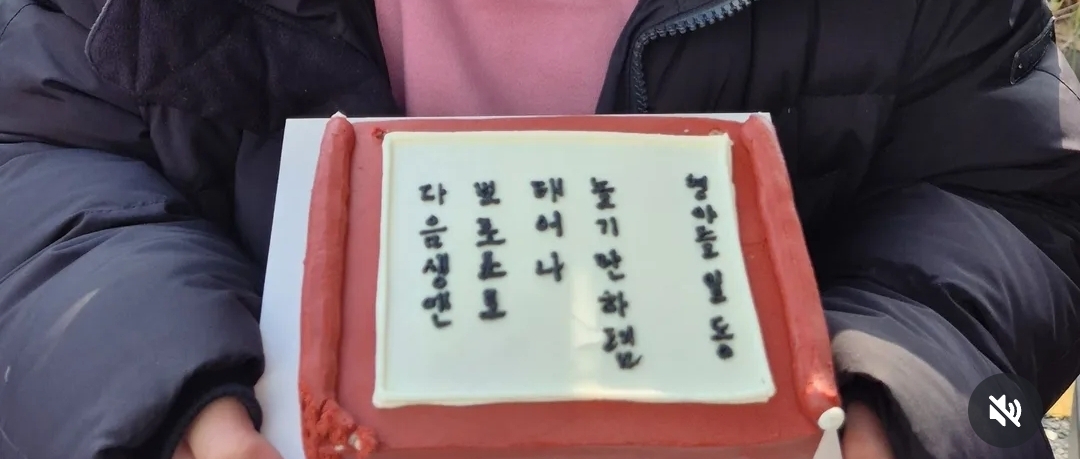 다음생엔
뽀로로로
태어나
놀기만하렴
형아들일동